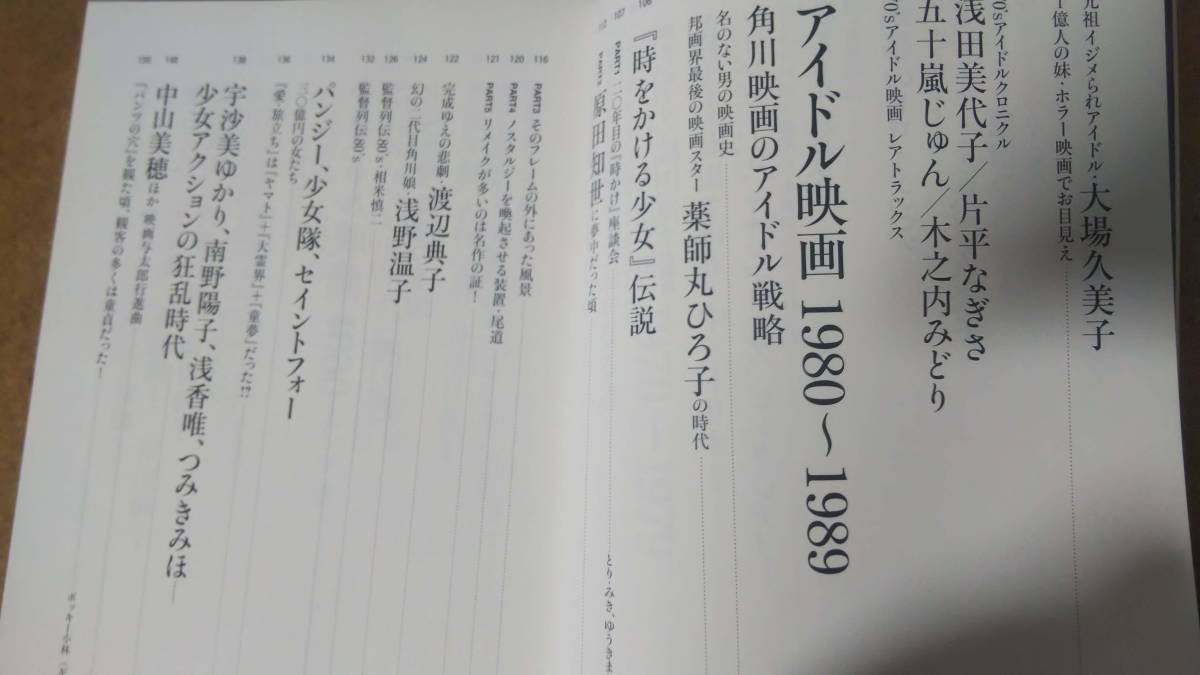 元祖イジメられアイドル・大場久美子
一億人の妹・ホラー映画でお目見え
70'sアイドルクロニクル
浅田美代子／片平なぎさ
五十嵐じゅん／木之内みどり
70'sアイドル映画 レアトラックス
アイドル映画 1980〜1989
角川映画のアイドル戦略
名のない男の映画史
邦画界最後の映画スター 薬師丸ひろ子の時代
106 『時をかける少女』伝説
107 PART1 二〇年目の『時かけ』座談会
とり・みき、ゆうきま
PART2 原田知世に夢中だった頃
116 PART3 そのフレームの外にあった風景
120 PART4 ノスタルジーを喚起させる装置・尾道
121 PART5 リメイクが多いのは名作の証！
122 完成ゆえの悲劇・渡辺典子
124 幻の二代目角川娘・浅野温子
126 監督列伝80's・相米慎二
132 監督列伝80's
134 パンジー、少女隊、セイントフォー
三〇億円の女たち
136 『愛・旅立ち』は『ヤマト』＋『大霊界』＋『童夢』だった!?
138 宇沙美ゆかり、南野陽子、浅香唯、つみきみほ
少女アクションの狂乱時代
148 中山美穂ほか 映画与太郎行進曲
150 『パンツの穴』を観た頃、観客の多くは童貞だった！
ポッキー小林